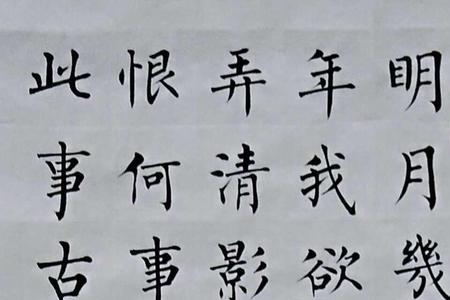 明月幾
年我欲
弄清影
恨何事
此事古